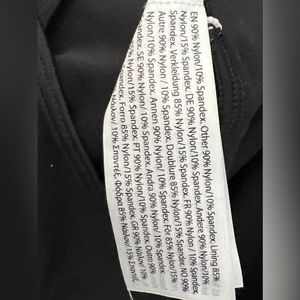 EN 90% Nylon/10% Spandex, Other 90% Nylon/10% Spandex. Lining 85%
Nylon/15% Spandex. DE 90% Nylon/10% Spandex, Andere 90% Nylon/10%
Spandex. Verkleidung 85% Nylon/15% Spandex. FR 90% Nylon/10% Spandex,
Autre 90% Nylon/10% Spandex. Doublure 85% Nylon/15% Spandex. NO 90%
Nylon/10% Spandex, Annen 90% Nylon/10% Spandex. Fôr 85% Nylon/15%
Spandex. SE 90% Nylon/10% Spandex, Andra 90% Nylon/10% Spandex.
Nylon/15% Spandex. PT 90% Nylon/10% Spandex, Outro 90%
Spandex. Forro 85% Nylon/15% Spandex. GR 90% Νάιλον/10%
Νάιλον/10% Σπαντέξ. Φόδρα 85% Νάιλον/15% Σπαντέξ.